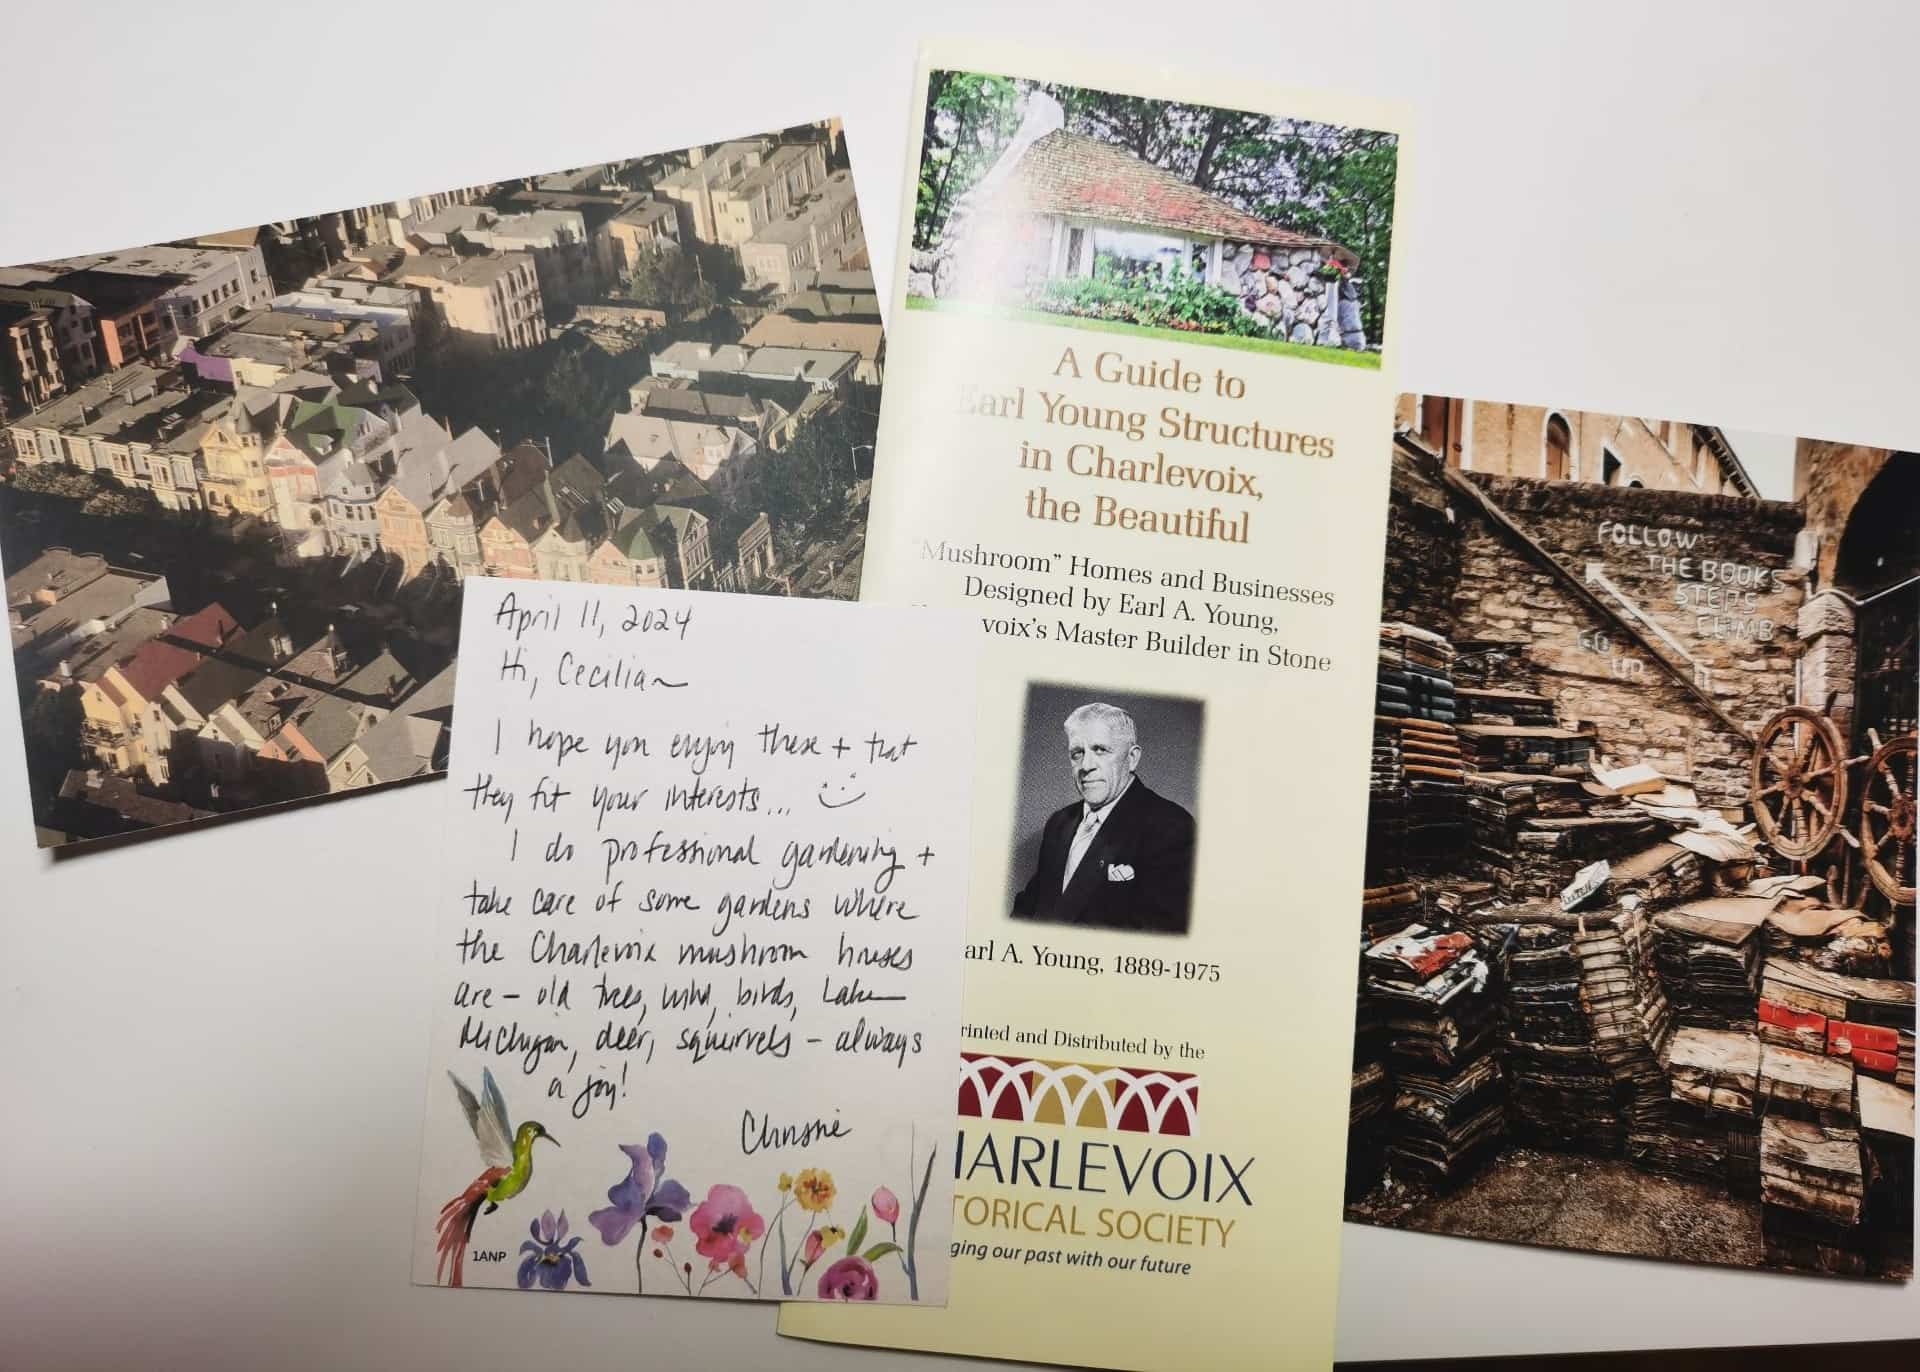 April 11, 2024
Hi, Cecilia~
I hope you enjoy these + that
they fit your interests...
I do professional gardening +
take care of some gardens where
the Charlevoix mushroom houses
are - old trees, wind, birds, Lake
Michigan, deer, squirrels - always
a joy!
Christie
1ANP
A Guide to
Earl Young Structures
in Charlevoix,
the Beautiful
"Mushroom" Homes and Businesses
Designed by Earl A. Young,
voix's Master Builder in Stone
arl A. Young, 1889-1975
rinted and Distributed by the
HARLEVOIX
TORICAL SOCIETY
ging our past with our future
FOLLOW
THE BOOKS
STEPS
CLIMB
GO
UP